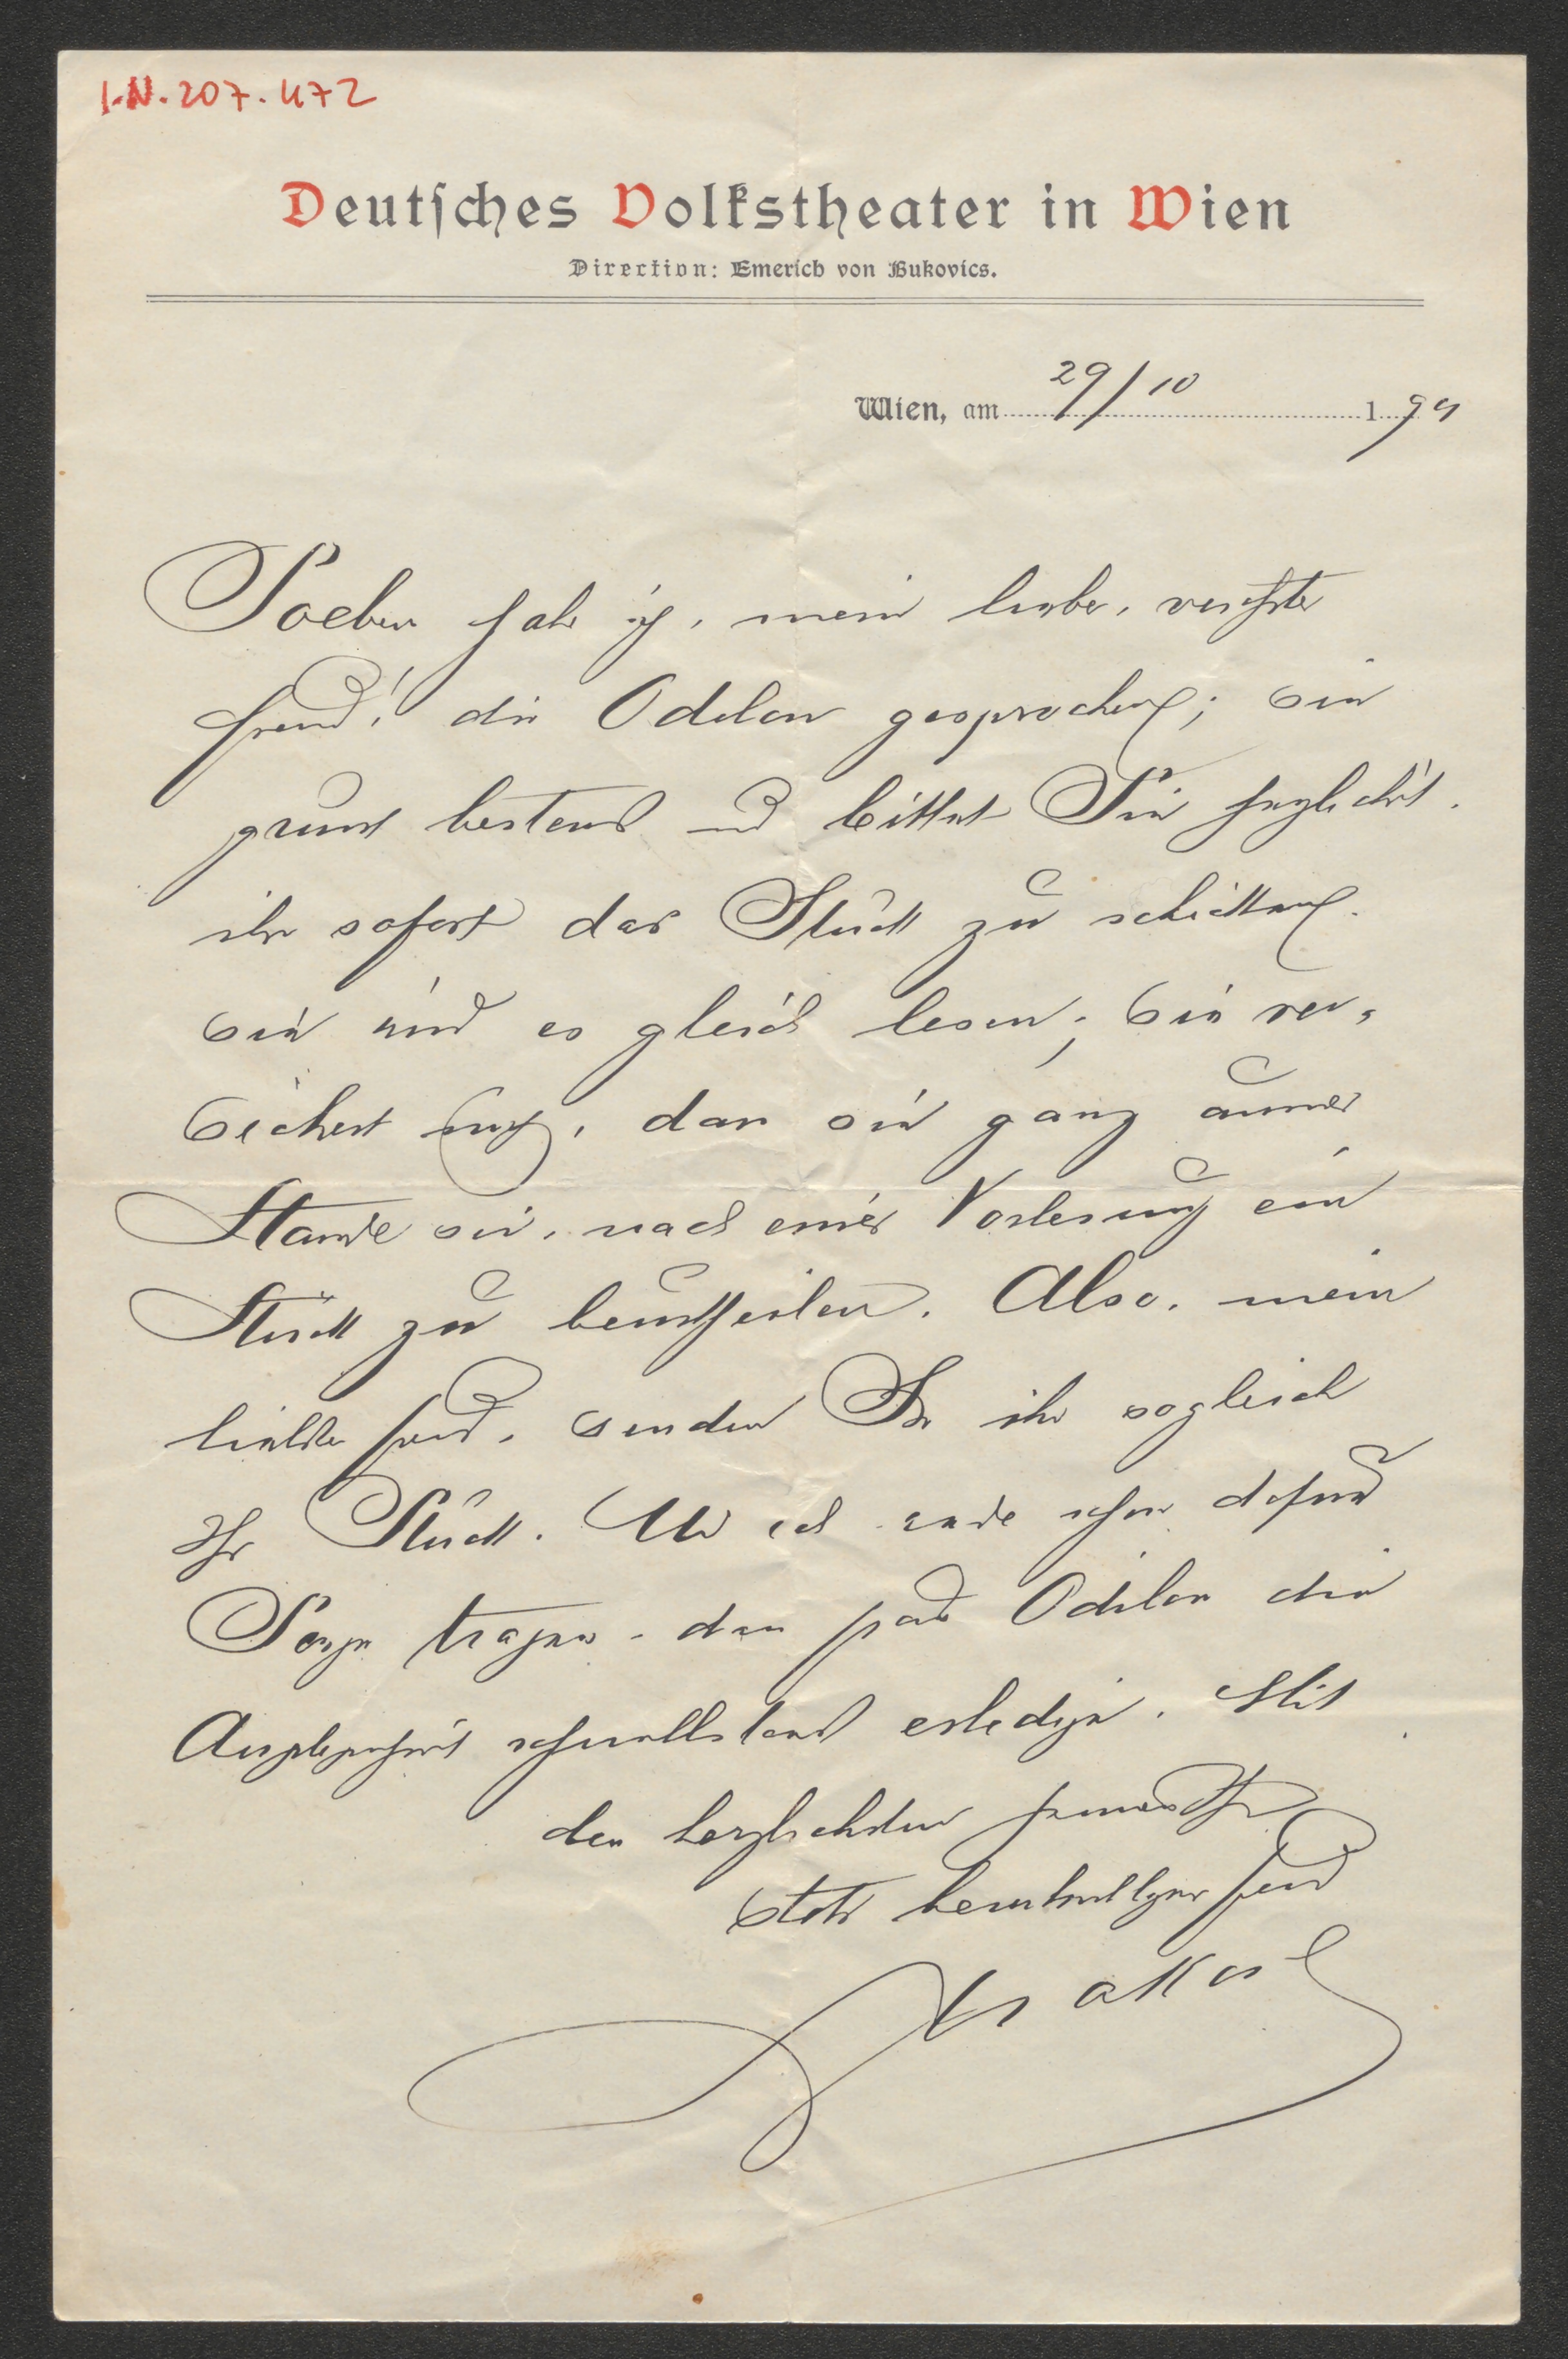 I.N. 207.472
Deutſches Volkstheater in Wien
Direction: Emerich von Bukovics.
Wien, am 29/10 1 94
Soeben habe ich, mein lieber, verehrter
Freund! die Odilon gesprochen; sie
grüsst bestens und bittet Sie herzlichst.
ihr sofort das Stück zu schicken.
Sie wird es gleich lesen; sie ver-
sichert mich, dass sie ganz ausser
Stande sei, nach einer Vorlesung ein
Stück zu beurtheilen. Also, mein
liebster Freund, senden Sie ihr sogleich
Ihr Stück. Und ich werde schon dafür
Sorge tragen. dass Frau Odilon die
Angelegenheit schnellstens erledige. Mit
den herzlichsten Ihr
stets bereitwilliger Freund